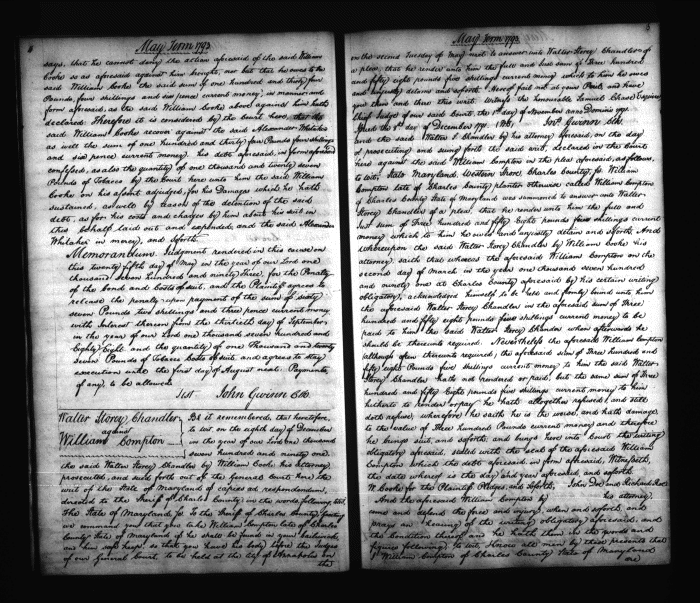 May Term 1793
says, that he cannot deny the action aforesaid of the said William
Cooke so as aforesaid against him brought, nor but that he owes to the
said William Cooke the said sum of one hundred and thirty four
Pounds, four shillings and six pence current money, in manner and
form aforesaid, as the said William Cooke above against him hath
declared Therefore it is considered by the Court here, that the
said William Cooke recover against the said Alexander Whitaker
as well the sum of one hundred and thirty four Pounds four shillings
and six pence current money, his debt aforesaid, in form aforesaid
confessed, as also the quantity of one thousand and twenty seven
Pounds of Tobacco by the Court here unto him the said William
Cooke on his assent adjudged, for his Damages which he hath
sustained, as well by reason of the detention of the said
debt, as for his costs and charges by him about his suit in
this behalf laid out and expended, and the said Alexander
Whitaker in mercy, and soforth.
Memorandum Judgment rendered in this cause on
this twenty fifth day of May in the year of our Lord one
thousand seven hundred and ninety three, for the Penalty
of the bond and Costs of suit, and the Plaintiff agrees to
release the penalty upon payment of the sum of sixty
seven Pounds two shillings and three pence current money
with Interest thereon from the thirtieth day of September
in the year of our Lord one thousand seven hundred and
Eighty Eight and the quantity of one Thousand and twenty
Seven Pounds of Tobacco Costs of suit and agrees to stay
execution until the first day of August next. Payments
if any, to be allowed
Test John Gwinn Clk.
Walter Storey Chandler
against
William Compton
Be it remembered, that heretofore,
to wit on the eighth day of December
in the year of our Lord one thousand
seven hundred and ninety one
the said Walter Storey Chandler by William Cooke his attorney
prosecuted, and sued forth out of the general Court here the
writ of the State of Maryland of capias ad respondendum,
directed to the Sheriff of Charles County in the words following, to wit,
The State of Maryland to the Sheriff of Charles County, Greeting
we command you that you take William Compton late of Charles
County State of Maryland if he shall be found in your bailiwick
and him safe keep, so that you have his body before the Judges
of our General Court, to be held at the City of Annapolis on
the
May Term 1793
on the second Tuesday of May next to answer unto Walter Storey Chandler of
a plea, that he render unto him the full and Just sum of Three hundred
and fifty eight pounds five shillings current money which to him he owes
and unjustly detains and soforth. Hereof fail not at your Peril, and Have
you then and there this writ. Witness the honorable Samuel Chase Esquire
Chief Judge of our said Court, the 1st day of November anno Domini 1791
Issued the 8th day of December 1791. Jno. Gwinn Clk.
and the said Walter S Chandler by his attorney aforesaid, on the day
of prosecuting and suing forth the said writ, declared in the Court
here against the said William Compton in the plea aforesaid, as follows,
to wit, State Maryland, Western Shore, Charles County, to wit William
Compton late of Charles County planter otherwise called William Compton
of Charles County State of Maryland was summoned to answer unto Walter
Storey Chandler of a plea, that he render unto him the full and
Just sum of Three hundred and fifty Eight pounds five shillings current
money which to him he owes and unjustly detains and soforth. And
Whereupon the said Walter Storey Chandler by William Cooke his
attorney, saith that whereas the aforesaid William Compton on the
second day of March in the year one thousand seven hundred
and ninety one at Charles County aforesaid by his certain writing
obligatory, acknowledged himself to be held and firmly bound unto him
the aforesaid Walter Storey Chandler in the aforesaid sum of Three
hundred and fifty eight pounds five shillings current money to be
paid to him the said Walter Storey Chandler when afterwards he
should be thereunto required. Nevertheless the aforesaid William Compton
(although often thereunto required,) the aforesaid sum of Three hundred and
fifty eight Pounds five shillings current money to him the said Walter
Storey Chandler hath not rendered or paid, but the same sum of Three
hundred and fifty Eight Pounds five shillings current money to him
hitherto to render or pay he hath altogether refused and still
doth refuse, wherefore he saith he is the worse, and hath damage
to the value of Three hundred Pounds current money and therefore
he brings suit, and soforth, and brings here into Court the writing
obligatory aforesaid, sealed with the seal of the aforesaid William
Compton which the debt aforesaid in form aforesaid, Witnesseth,
the date whereof is the day and year aforesaid and soforth
W. Cooke for the Plaintiff Pledges and soforth, John Doe and Richard Roe
And the aforesaid William Compton by his attorney,
come and defend the force and injury, when and soforth, and
prays an hearing of the writing obligatory aforesaid, and
the Condition thereof and he hath them in the words and
figures following, to wit, Know all men by these presents that
I William Compton of Charles County State of Maryland
are